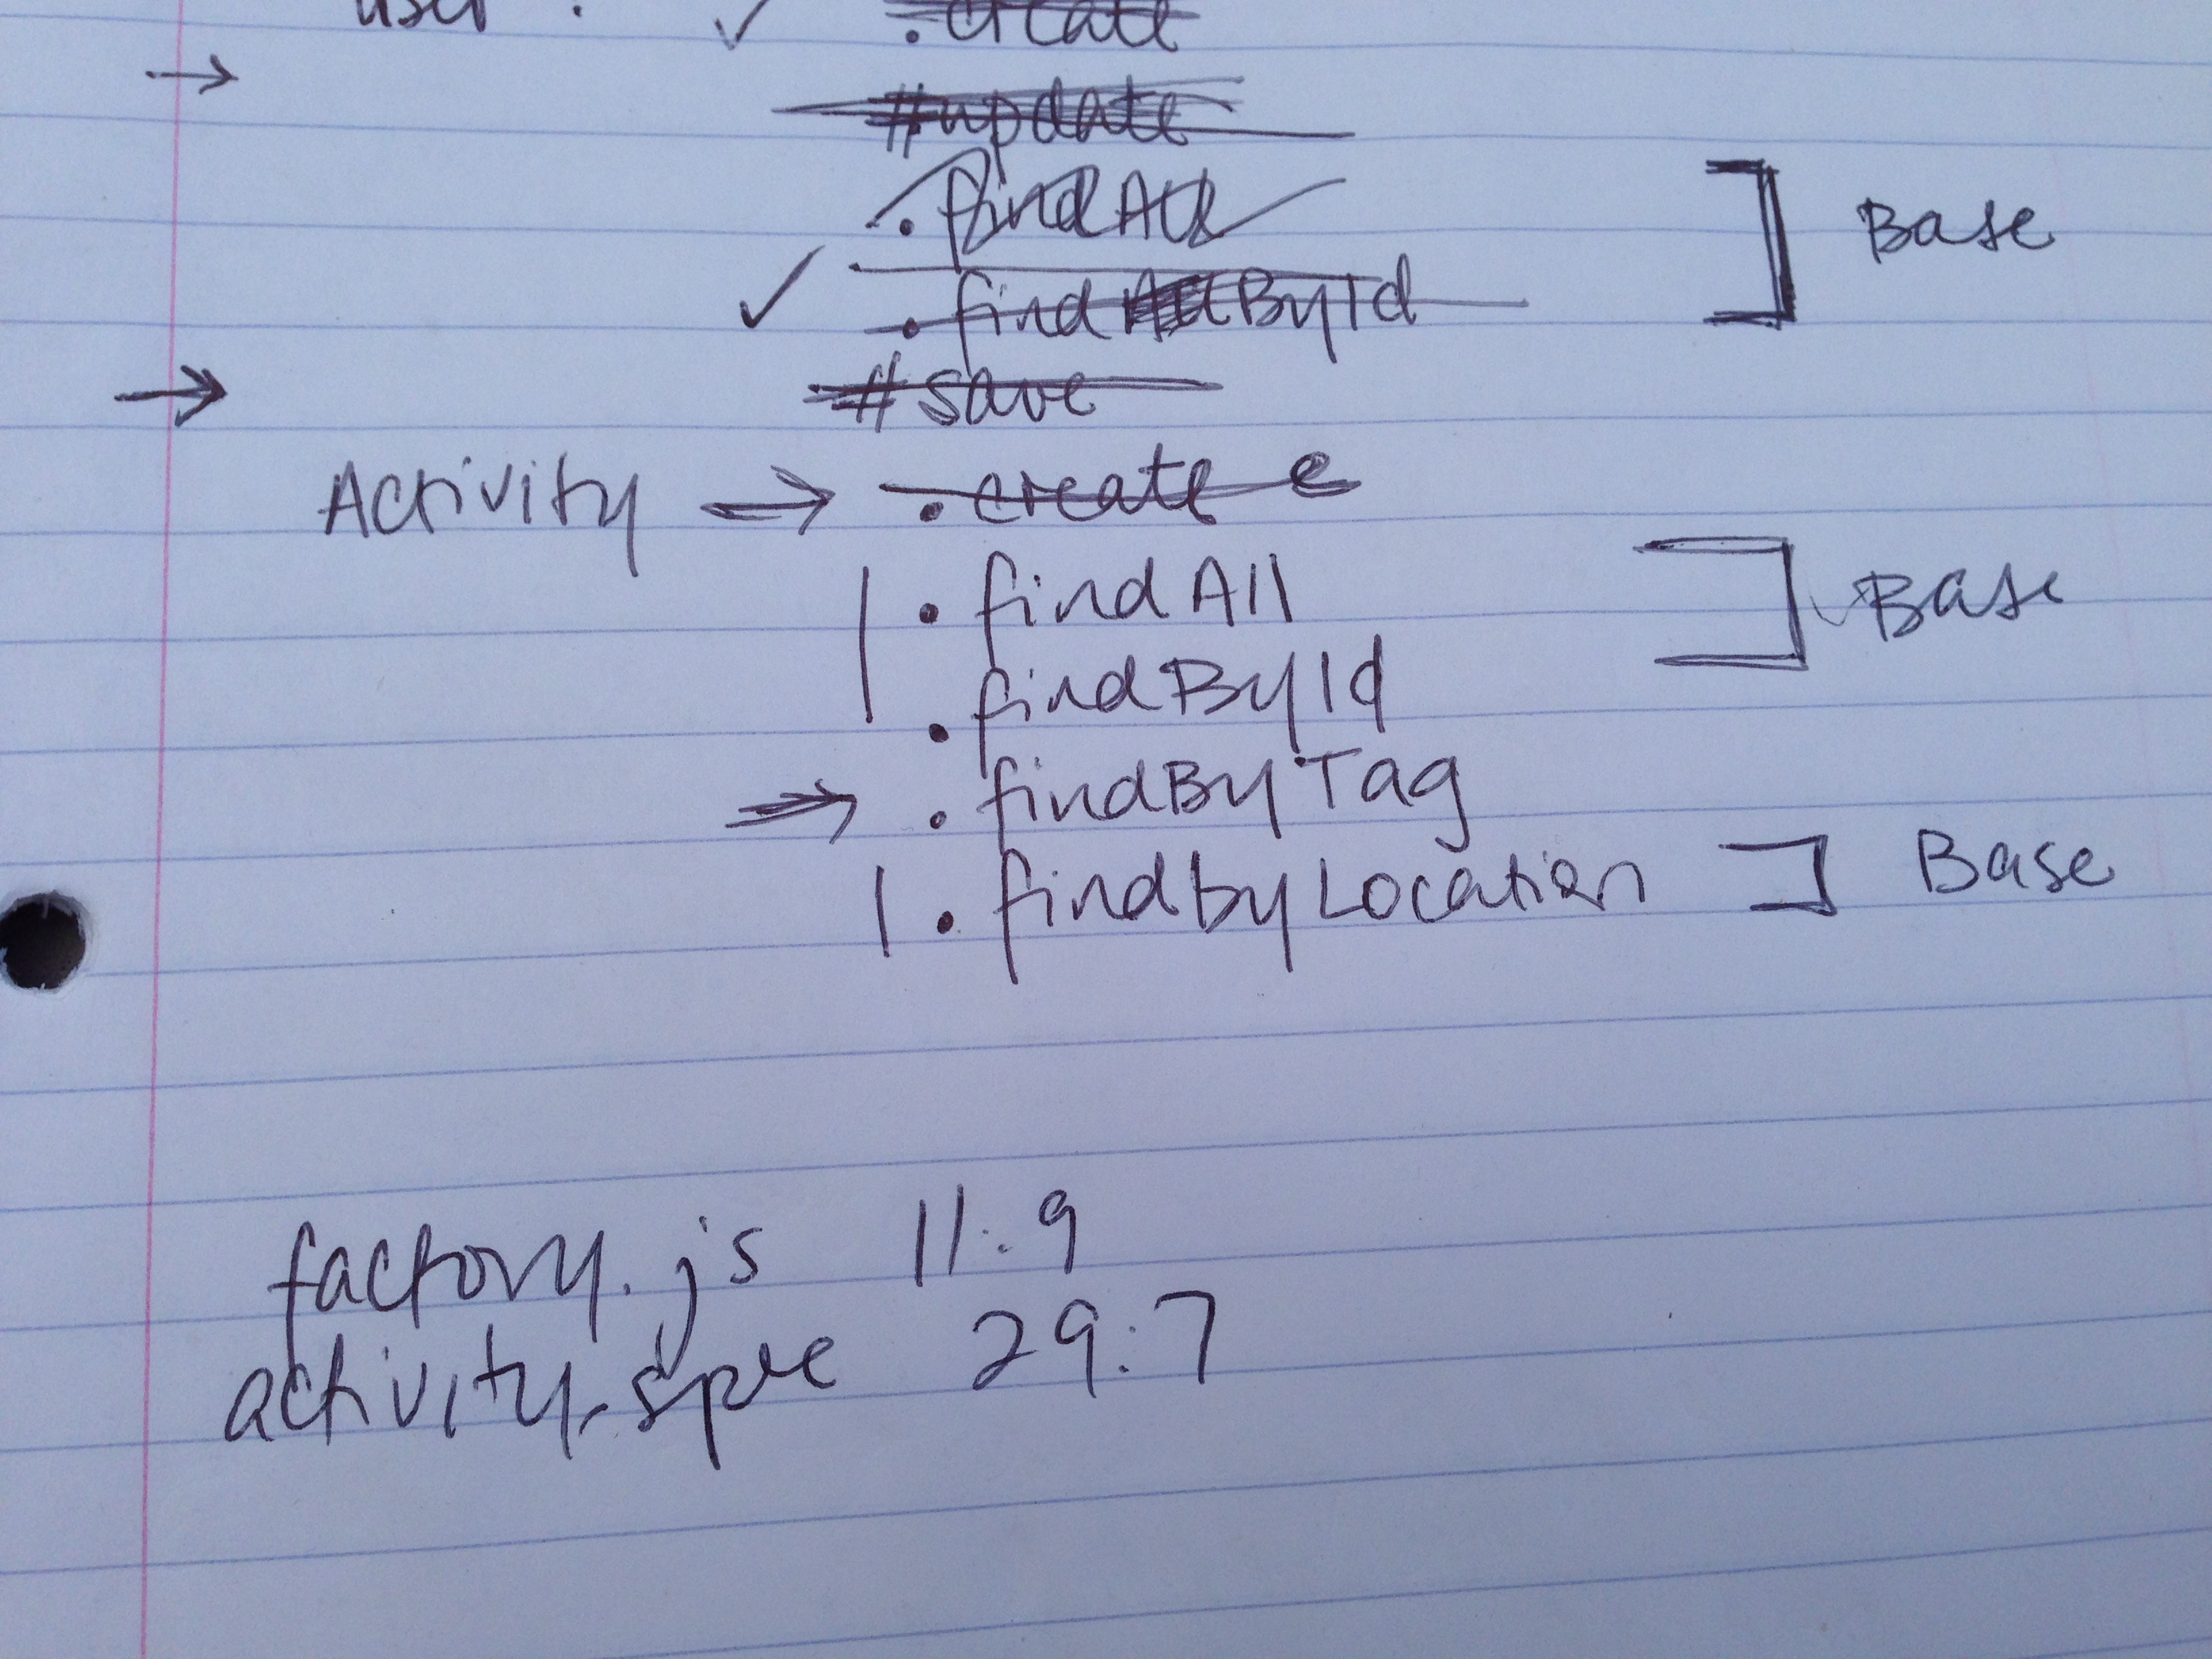 user : ✓ .create
→
#update
.findAll
✓ .find ById
Base
→ #save
Activity → .create e
| .findAll
.findById
Base
→ .findByTag
| .findbyLocation ] Base
factory.js 11:9
activity.spec 29:7